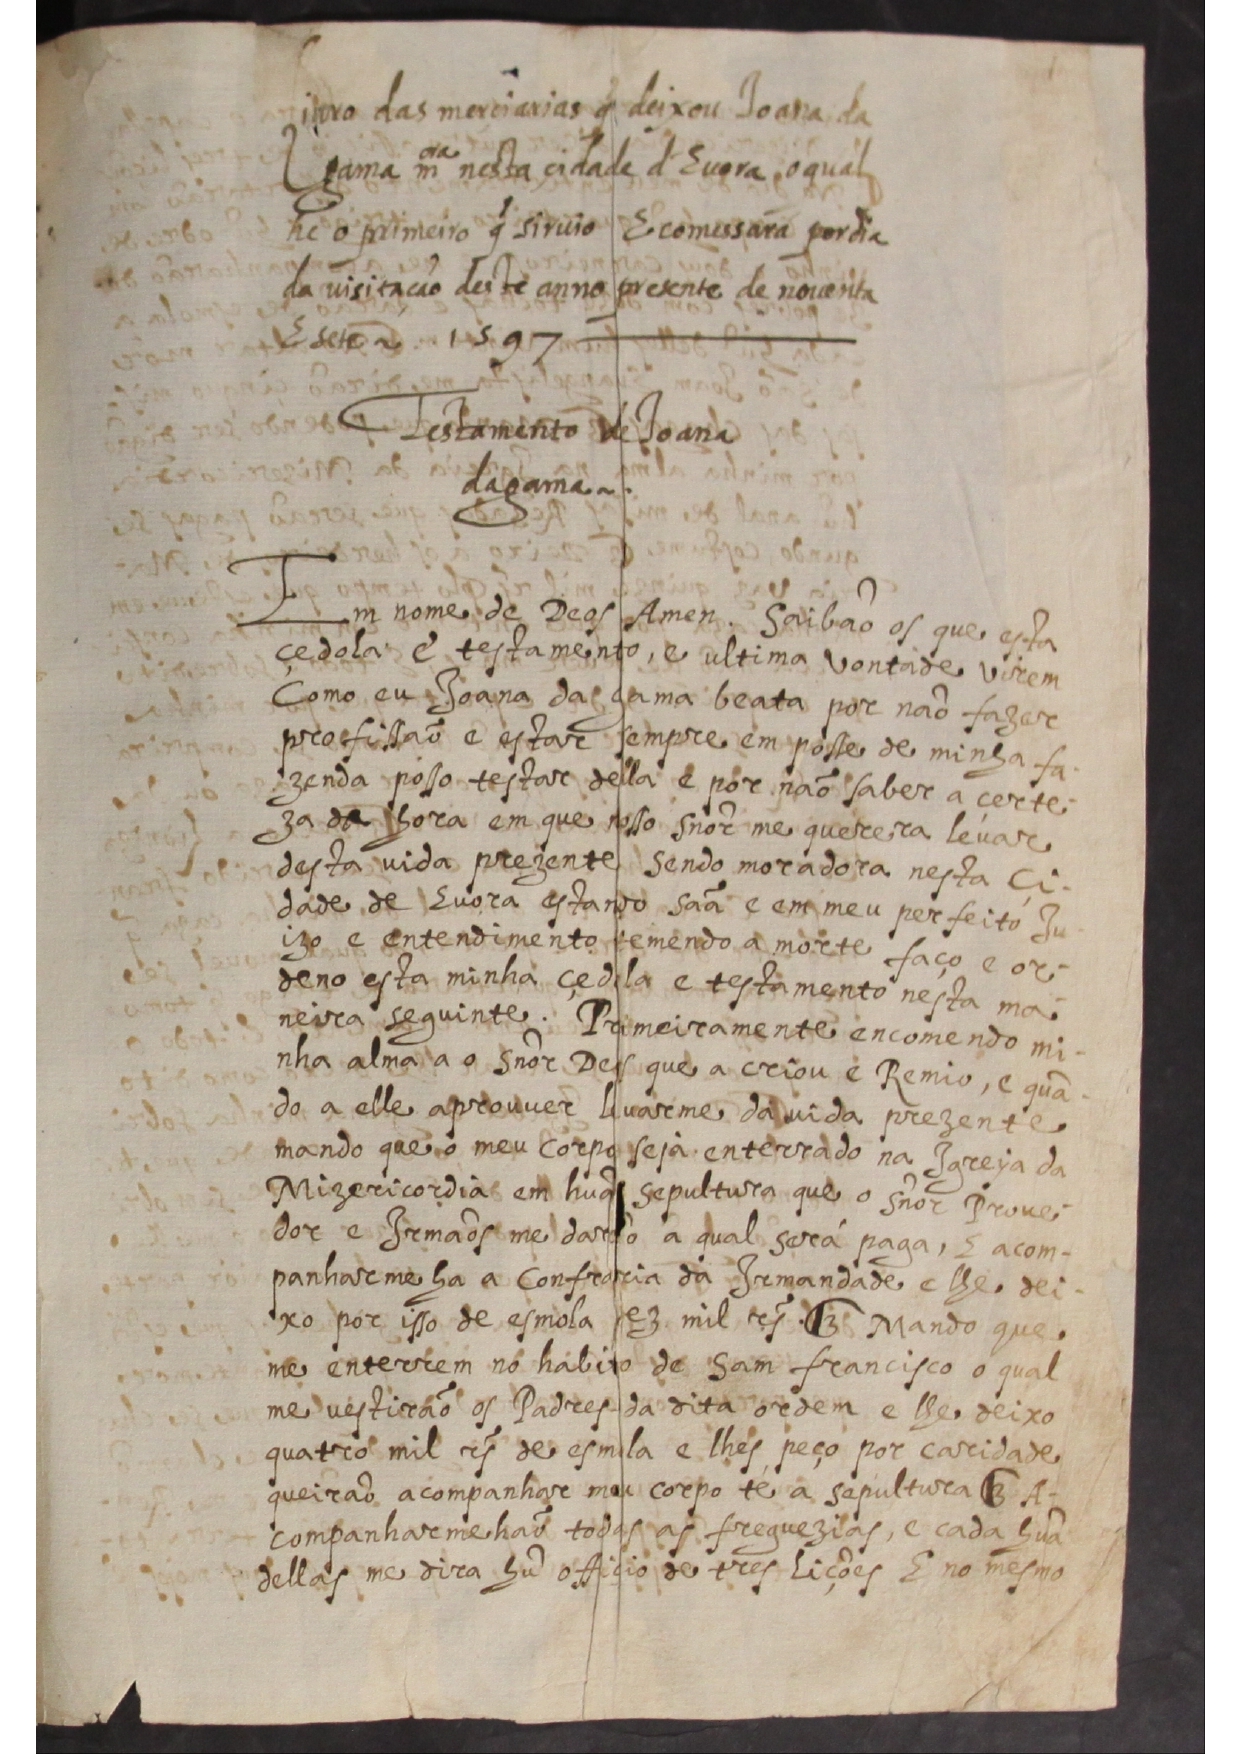 Livro das merciarias q̃ deixou Joana da
gama m.ora nesta cidade d'Euora, o qual
he o primeiro q̃ siruio E comessara por dia
da visitacaõ deste anno presente de nouenta
E sete ~ 1597
Testamento de Joana
da gama ~.
Em nome de Deos Amen. Saibaõ os que esta
çedola e testamento, e ultima vontade virem
Como eu Joana da gama beata por naõ fazer
profissaõ e estar sempre em posse de minha fa-
zenda posso testar della e por naõ saber a certe-
za da hora em que nosso snõr me querera leuar
desta vida prezente sendo moradora nesta Ci-
dade de Euora estando saã e em meu perfeito Ju-
izo e entendimento temendo a morte faço e or-
deno esta minha çedola e testamento nesta ma-
neira seguinte. Primeiramente encomendo mi-
nha alma a o snõr Deos que a criou e Remio, e quã-
do a elle aprouuer leuarme da vida prezente
mando que o meu corpo seja enterrado na Igreja da
Mizericordia em huã sepultura que o snõr Proue-
dor e Irmaõs me daraõ a qual será paga, E acom-
panharme ha a Confraria da Irmandade e lhe dei-
xo por isso de esmola dez mil rs̃. Mando que
me enterrem no habito de Sam francisco o qual
me uestiraõ os Padres da dita ordem e lhe deixo
quatro mil rs̃ de esmola e lhes peço por caridade
queiraõ acompanhar meu corpo té a sepultura A-
companharme haõ todas as freguezias, e cada huã
dellas me dira hũ officio de tres liçoẽs E no mesmo